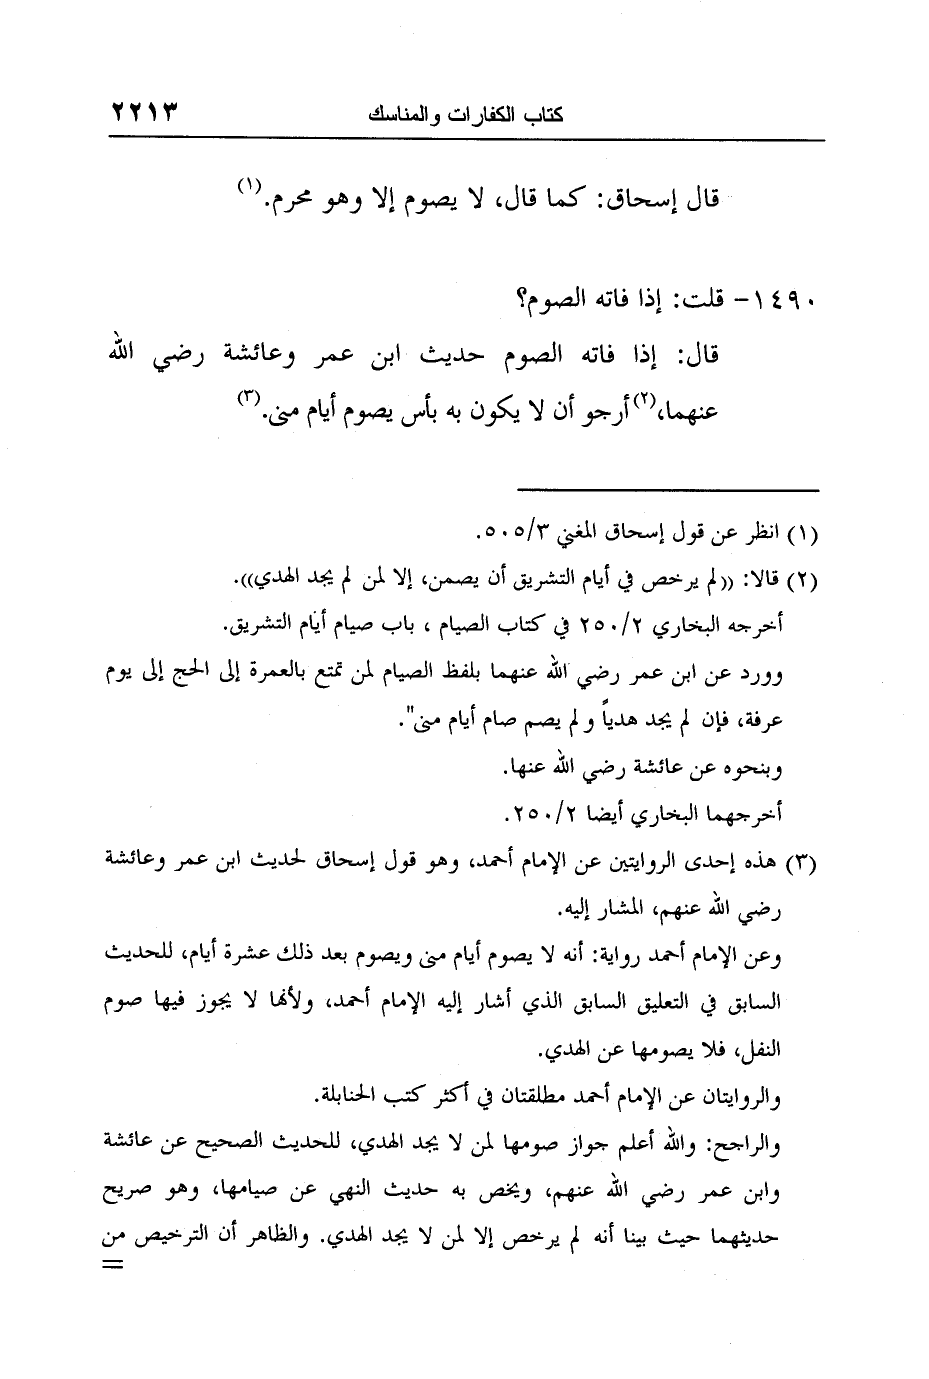 كتاب الكفارات والمناسك ٢٢١٣
قال إسحاق: كما قال، لا يصوم إلا وهو محرم.(١)
١٤٩٠- قلت: إذا فاته الصوم؟
قال: إذا فاته الصوم حديث ابن عمر وعائشة رضي الله
عنهما،(٢) أرجو أن لا يكون به بأس يصوم أيام منى.(٣)
(١) انظر عن قول إسحاق المغني ٥٠٥/٣.
(٢) قالا: ((لم يرخص في أيام التشريق أن يصمن، إلا لمن لم يجد الهدي)).
أخرجه البخاري ٢٥٠/٢ في كتاب الصيام ، باب صيام أيام التشريق.
وورد عن ابن عمر رضي الله عنهما بلفظ الصيام لمن تمتع بالعمرة إلى الحج إلى يوم
عرفة، فإن لم يجد هدياً و لم يصم صام أيام منى".
وبنحوه عن عائشة رضي الله عنها.
أخرجهما البخاري أيضا ٢٥٠/٢.
(٣) هذه إحدى الروايتين عن الإمام أحمد، وهو قول إسحاق لحديث ابن عمر وعائشة
رضي الله عنهم، المشار إليه.
وعن الإمام أحمد رواية: أنه لا يصوم أيام منى ويصوم بعد ذلك عشرة أيام، للحديث
السابق في التعليق السابق الذي أشار إليه الإمام أحمد، ولأنها لا يجوز فيها صوم
النفل، فلا يصومها عن الهدي.
والروايتان عن الإمام أحمد مطلقتان في أكثر كتب الحنابلة.
والراجح: والله أعلم جواز صومها لمن لا يجد الهدي، للحديث الصحيح عن عائشة
وابن عمر رضي الله عنهم، ويخص به حديث النهي عن صيامها، وهو صريح
حديثهما حيث بينا أنه لم يرخص إلا لمن لا يجد الهدي. والظاهر أن الترخيص من
=